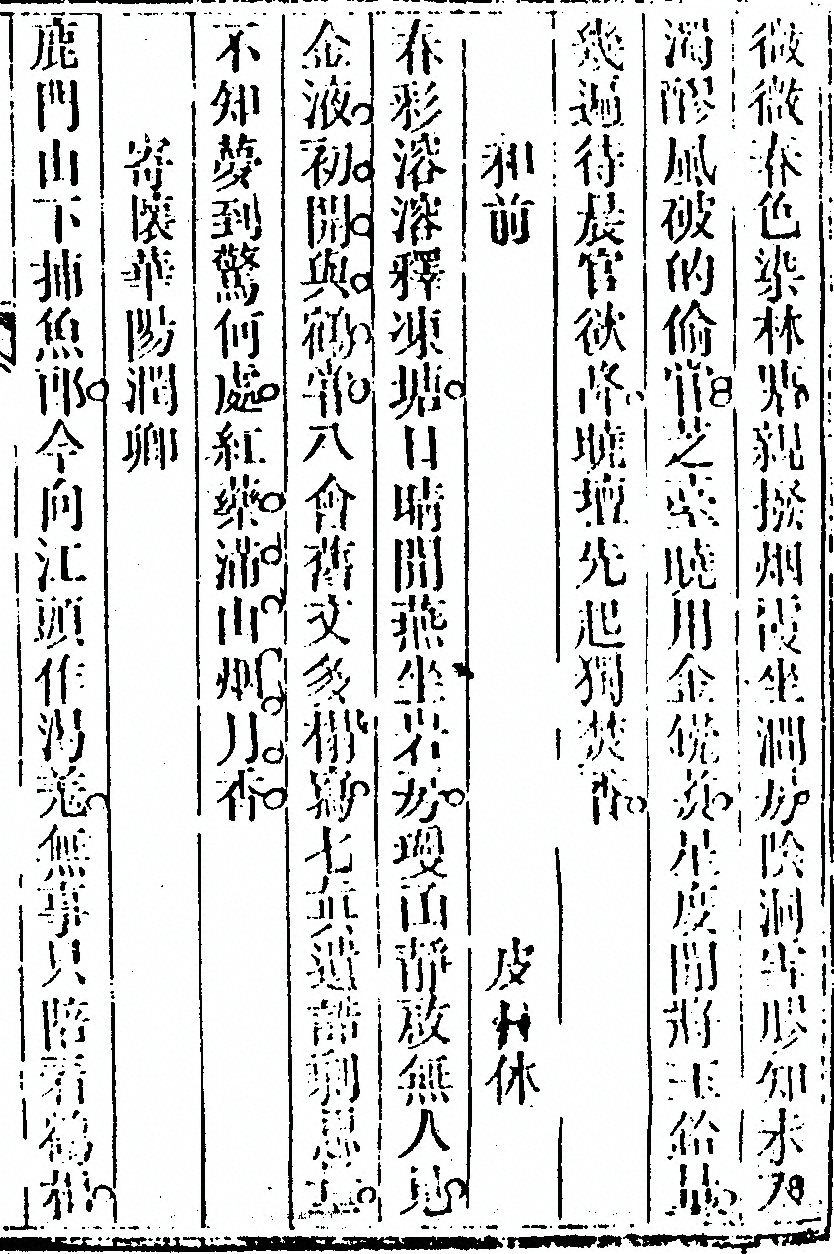 微微春色染林塘親撥烟霞坐澗房陰洞雪膠知未入
濁醪風破的偷嘗芝臺曉用金鐺煑星度閒將玉鉛量
幾遍待晨官欲降曉壇先起獨焚香
和前 皮日休
春彩溶溶釋凍塘日晴閒燕坐岩房瓊函靜啟無人見
金液初開與鶴嘗八會舊文多搨寫七真遺誥剩思量
不知夢到驚何處紅藥滿山烟月香
寄懷華陽潤卿
鹿門山下捕魚郎今向江頭作渴羌無事只陪看